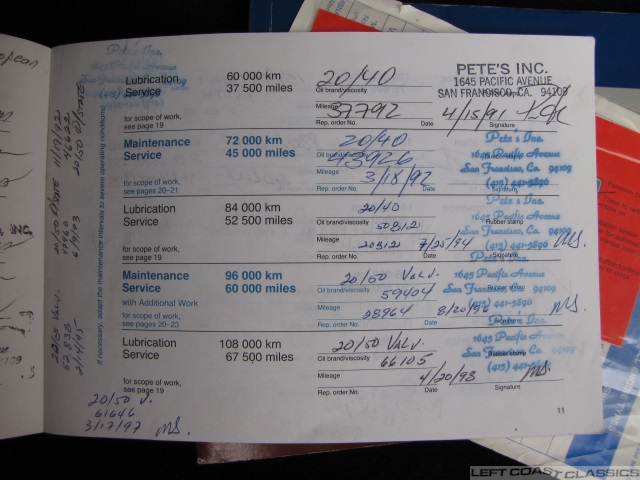 Lubrication Service
60 000 km
37 500 miles
20/40
Oil brand/viscosity
37792
Mileage
for scope of work,
see page 19
Rep. order No.
Date
4/15/91
Signature
PETE'S INC.
1645 PACIFIC AVENUE
SAN FRANCISCO, CA. 94109
Maintenance Service
72 000 km
45 000 miles
20/40
Oil brand/viscosity
43926
Mileage
3/18/92
for scope of work,
see pages 20–21
Rep. order No.
Date
Signature
Pete's Inc.
1645 Pacific Avenue
San Francisco, Ca. 94109
(415) 441-5896
Lubrication Service
84 000 km
52 500 miles
20/40
Oil brand/viscosity
50812
Mileage
for scope of work,
see page 19
Rep. order No.
Date
7/25/94
Rubber stamp
Signature
Pete's Inc.
1645 Pacific Avenue
San Francisco, Ca. 94109
(415) 441-5896
MS.
Maintenance Service
96 000 km
60 000 miles
with Additional Work
20/50 Valv.
Oil brand/viscosity
59404
Mileage
for scope of work,
see pages 20–23
Rep. order No.
Date
8/20/96
Signature
Pete's Inc.
1645 Pacific Avenue
San Francisco, Ca. 94109
(415) 441-5896
MS.
Lubrication Service
108 000 km
67 500 miles
20/50 Valv.
Oil brand/viscosity
66105
Mileage
for scope of work,
see page 19
Rep. order No.
Date
4/20/98
Rubber stamp
Signature
MS.
20/50 V.
61646
3/17/97
MS.
11
If necessary, adapt the maintenance intervals to severe operating conditions!
20/50 Valv.
52 838
2/4/95
6/9/93
Pete's Inc.
1645 Pacific Avenue
LEFT COAST CLASSICS